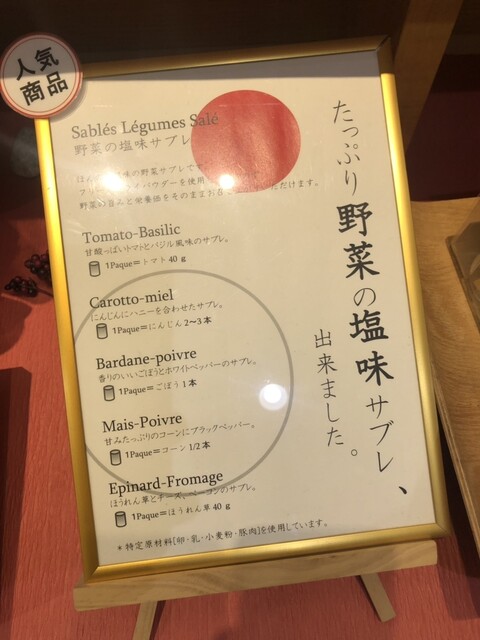 人気
商品
Sablés Légumes Salé
野菜の塩味サブレ
たっぷり野菜の塩味サブレ、
出来ました。
ほんのり塩味の野菜サブレです。
フリーズドライパウダーを使用
野菜の旨みと栄養価をそのままお いただけます。
Tomato-Basilic
甘酸っぱいトマトとバジル風味のサブレ。
1Paque=トマト40g
Carotto-miel
にんじんにハニーを合わせたサブレ。
1Paque=にんじん2〜3本
Bardane-poivre
香りのいいごぼうとホワイトペッパーのサブレ。
1Paque=ごぼう1本
Mais-Poivre
甘みたっぷりのコーンにブラックペッパー。
1Paque=コーン1/2本
Epinard-Fromage
ほうれん草とチーズ、ベーコンのサブレ。
1Paque=ほうれん草40g
*特定原材料[卵・乳・小麦粉・豚肉]を使用しています。